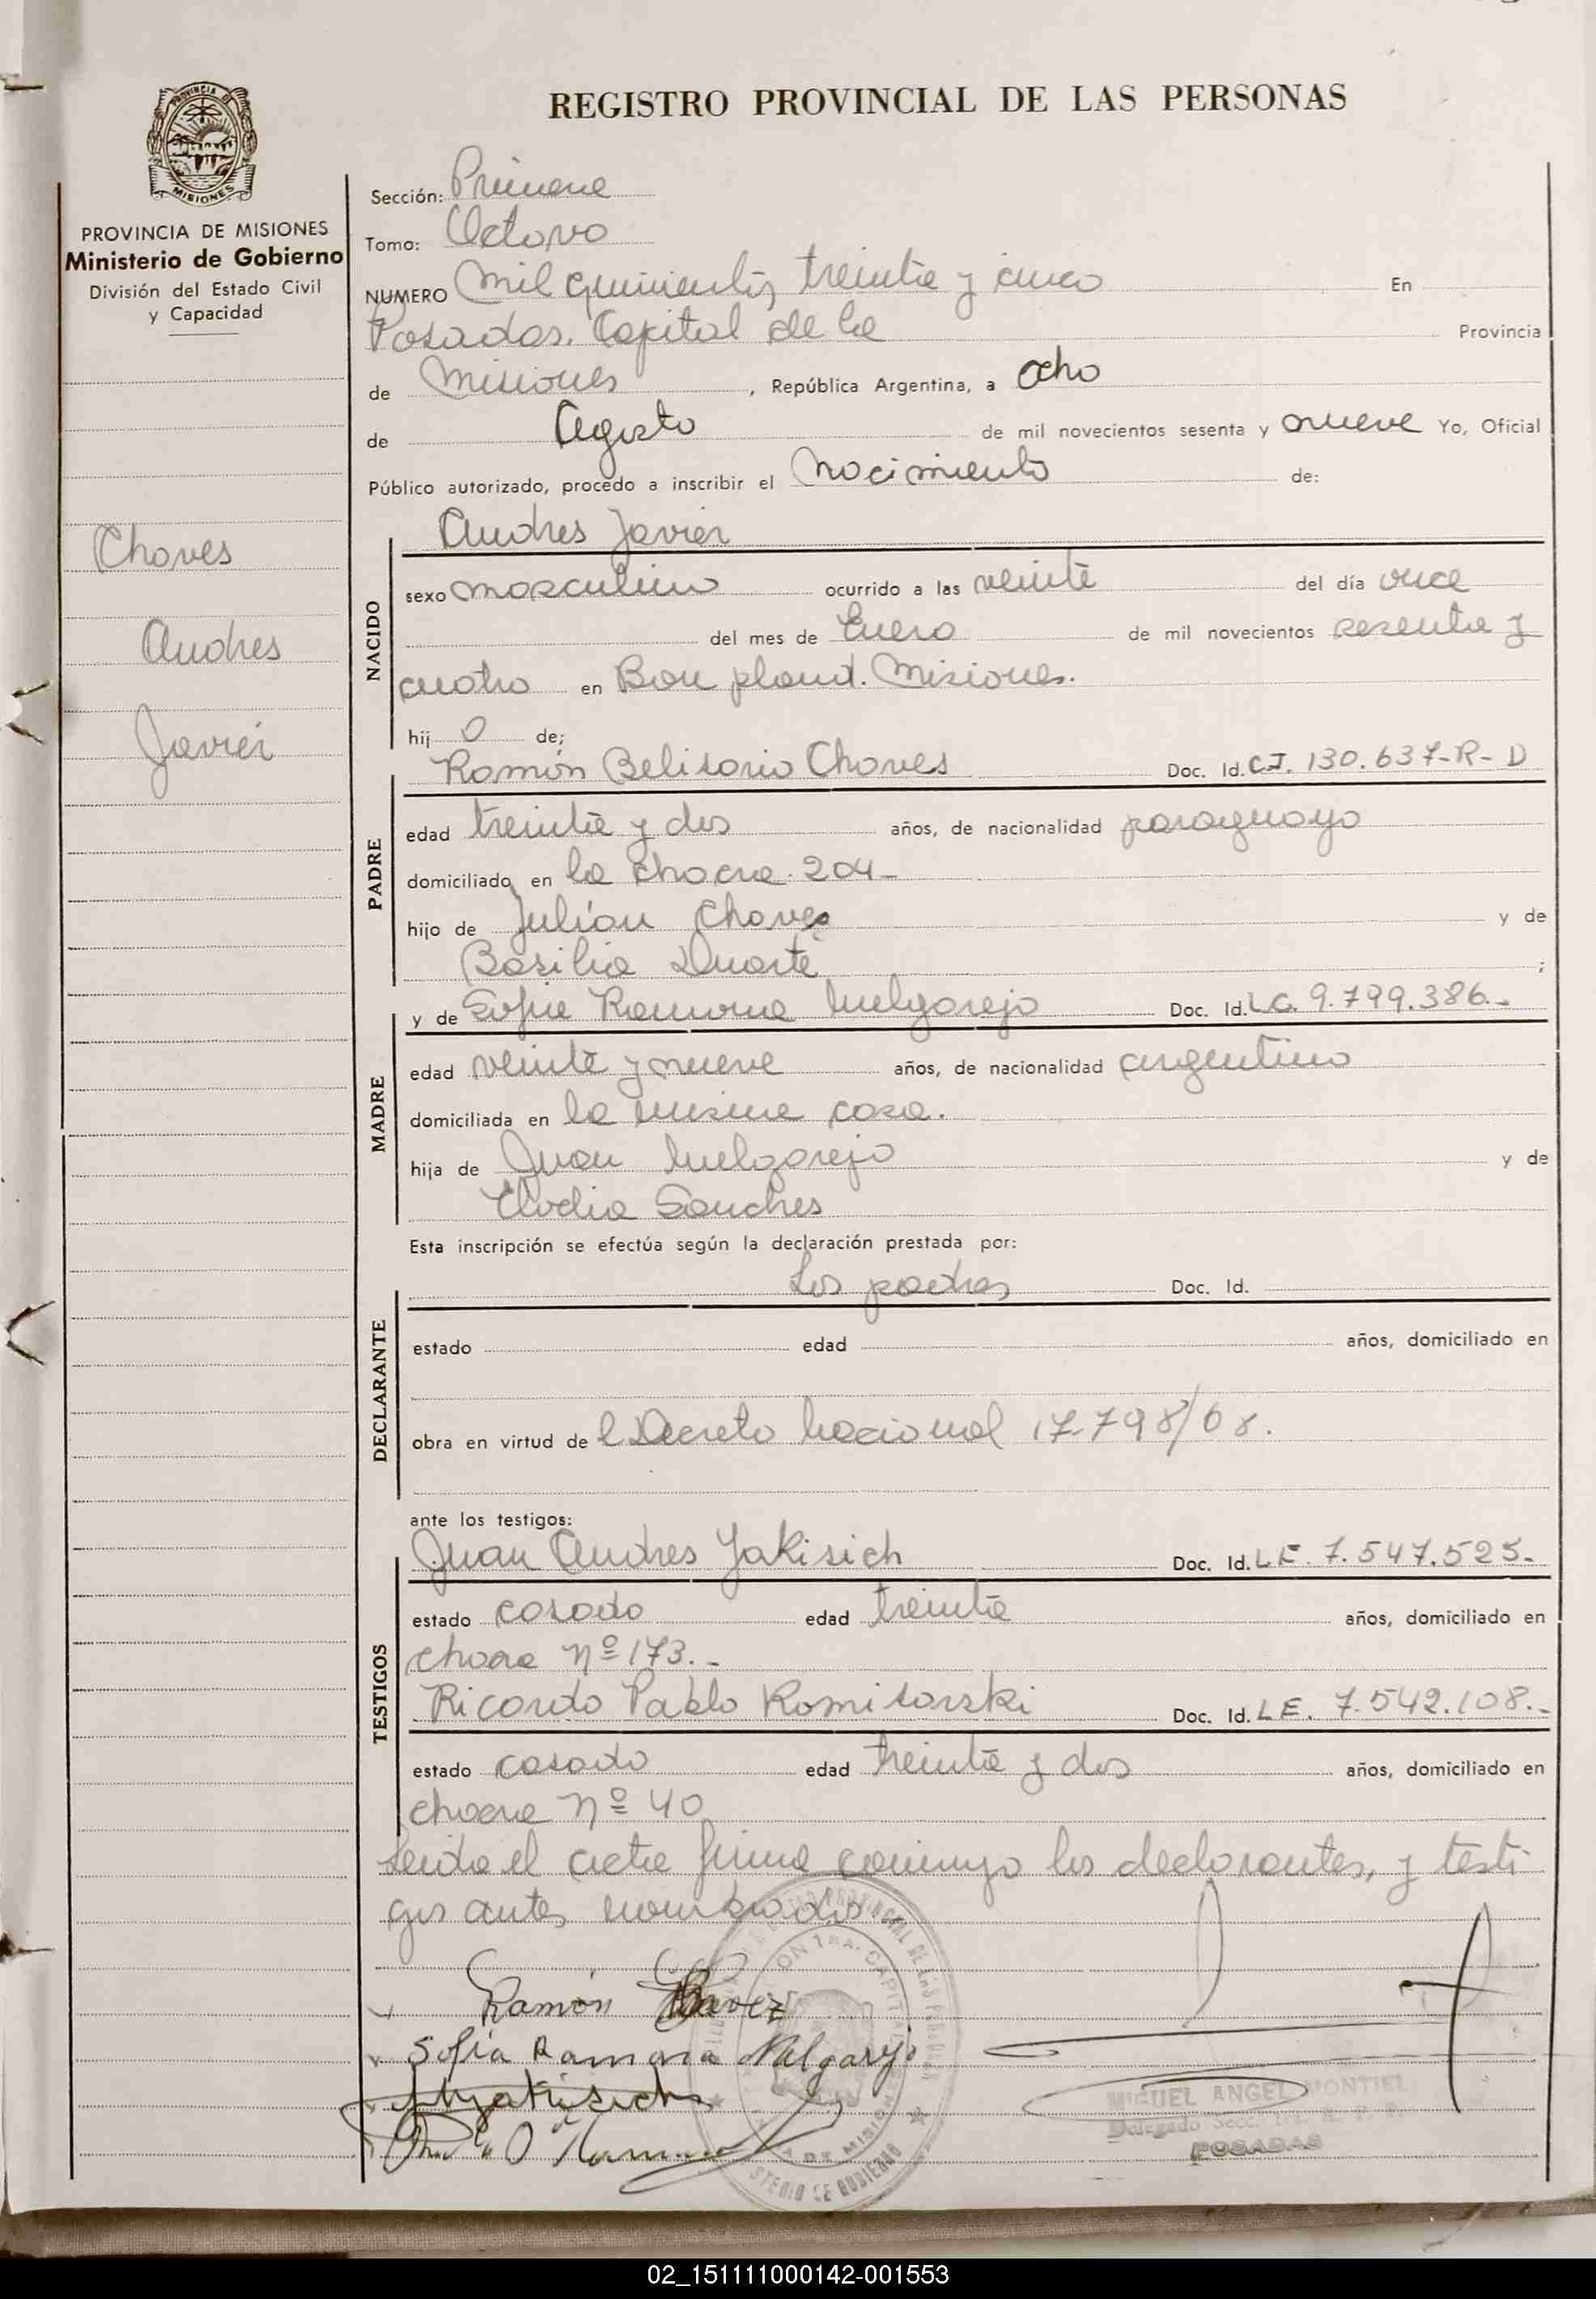 REGISTRO PROVINCIAL DE LAS PERSONAS
PROVINCIA DE MISIONES
Ministerio de Gobierno
División del Estado Civil
y Capacidad
Choves
Andres
Javier
Sección: Primera
Tomo: Octavo
NUMERO Mil quinientos treinta y cinco En
Posadas. Capital de la Provincia
de Misiones, República Argentina, a ocho
de Agosto de mil novecientos sesenta y nueve Yo, Oficial
Público autorizado, procedo a inscribir el nacimiento de:
NACIDO
Andres Javier
sexo masculino ocurrido a las veinte del día once
del mes de Enero de mil novecientos sesenta y
cuatro en Bon pland. Misiones.
hij o de;
PADRE
Ramón Belisario Choves Doc. Id. C.I. 130.637-R-D
edad treinta y dos años, de nacionalidad paraguayo
domiciliado en la chacra 204-
hijo de Julián Choves y de
Basilia Duarte ;
MADRE
y de Sofia Ramona Melgarejo Doc. Id. LC. 9.799.386.-
edad veinte y nueve años, de nacionalidad argentino
domiciliada en la misma casa.
hija de Juan Melgarejo y de
Clodia Sanches
Esta inscripción se efectúa según la declaración prestada por:
DECLARANTE
Los padres Doc. Id.
estado edad años, domiciliado en
obra en virtud de l Decreto Nacional 17.798/68.
ante los testigos:
TESTIGOS
Juan Andres Yakisich Doc. Id. LE. 7.547.525.-
estado casado edad treinta años, domiciliado en
chacra Nº 173.-
Ricardo Pablo Komisarski Doc. Id. LE. 7.542.108.-
estado casado edad treinta y dos años, domiciliado en
chacra Nº 40
Leida el acta firma conmigo los declarantes, y testi
gos antes nombrados.
Ramón Chavez
Sofía Ramona Melgarejo
MIGUEL ANGEL MONTIEL
Delegado Secc. 1ra. R. P. P.
POSADAS
02_151111000142-001553